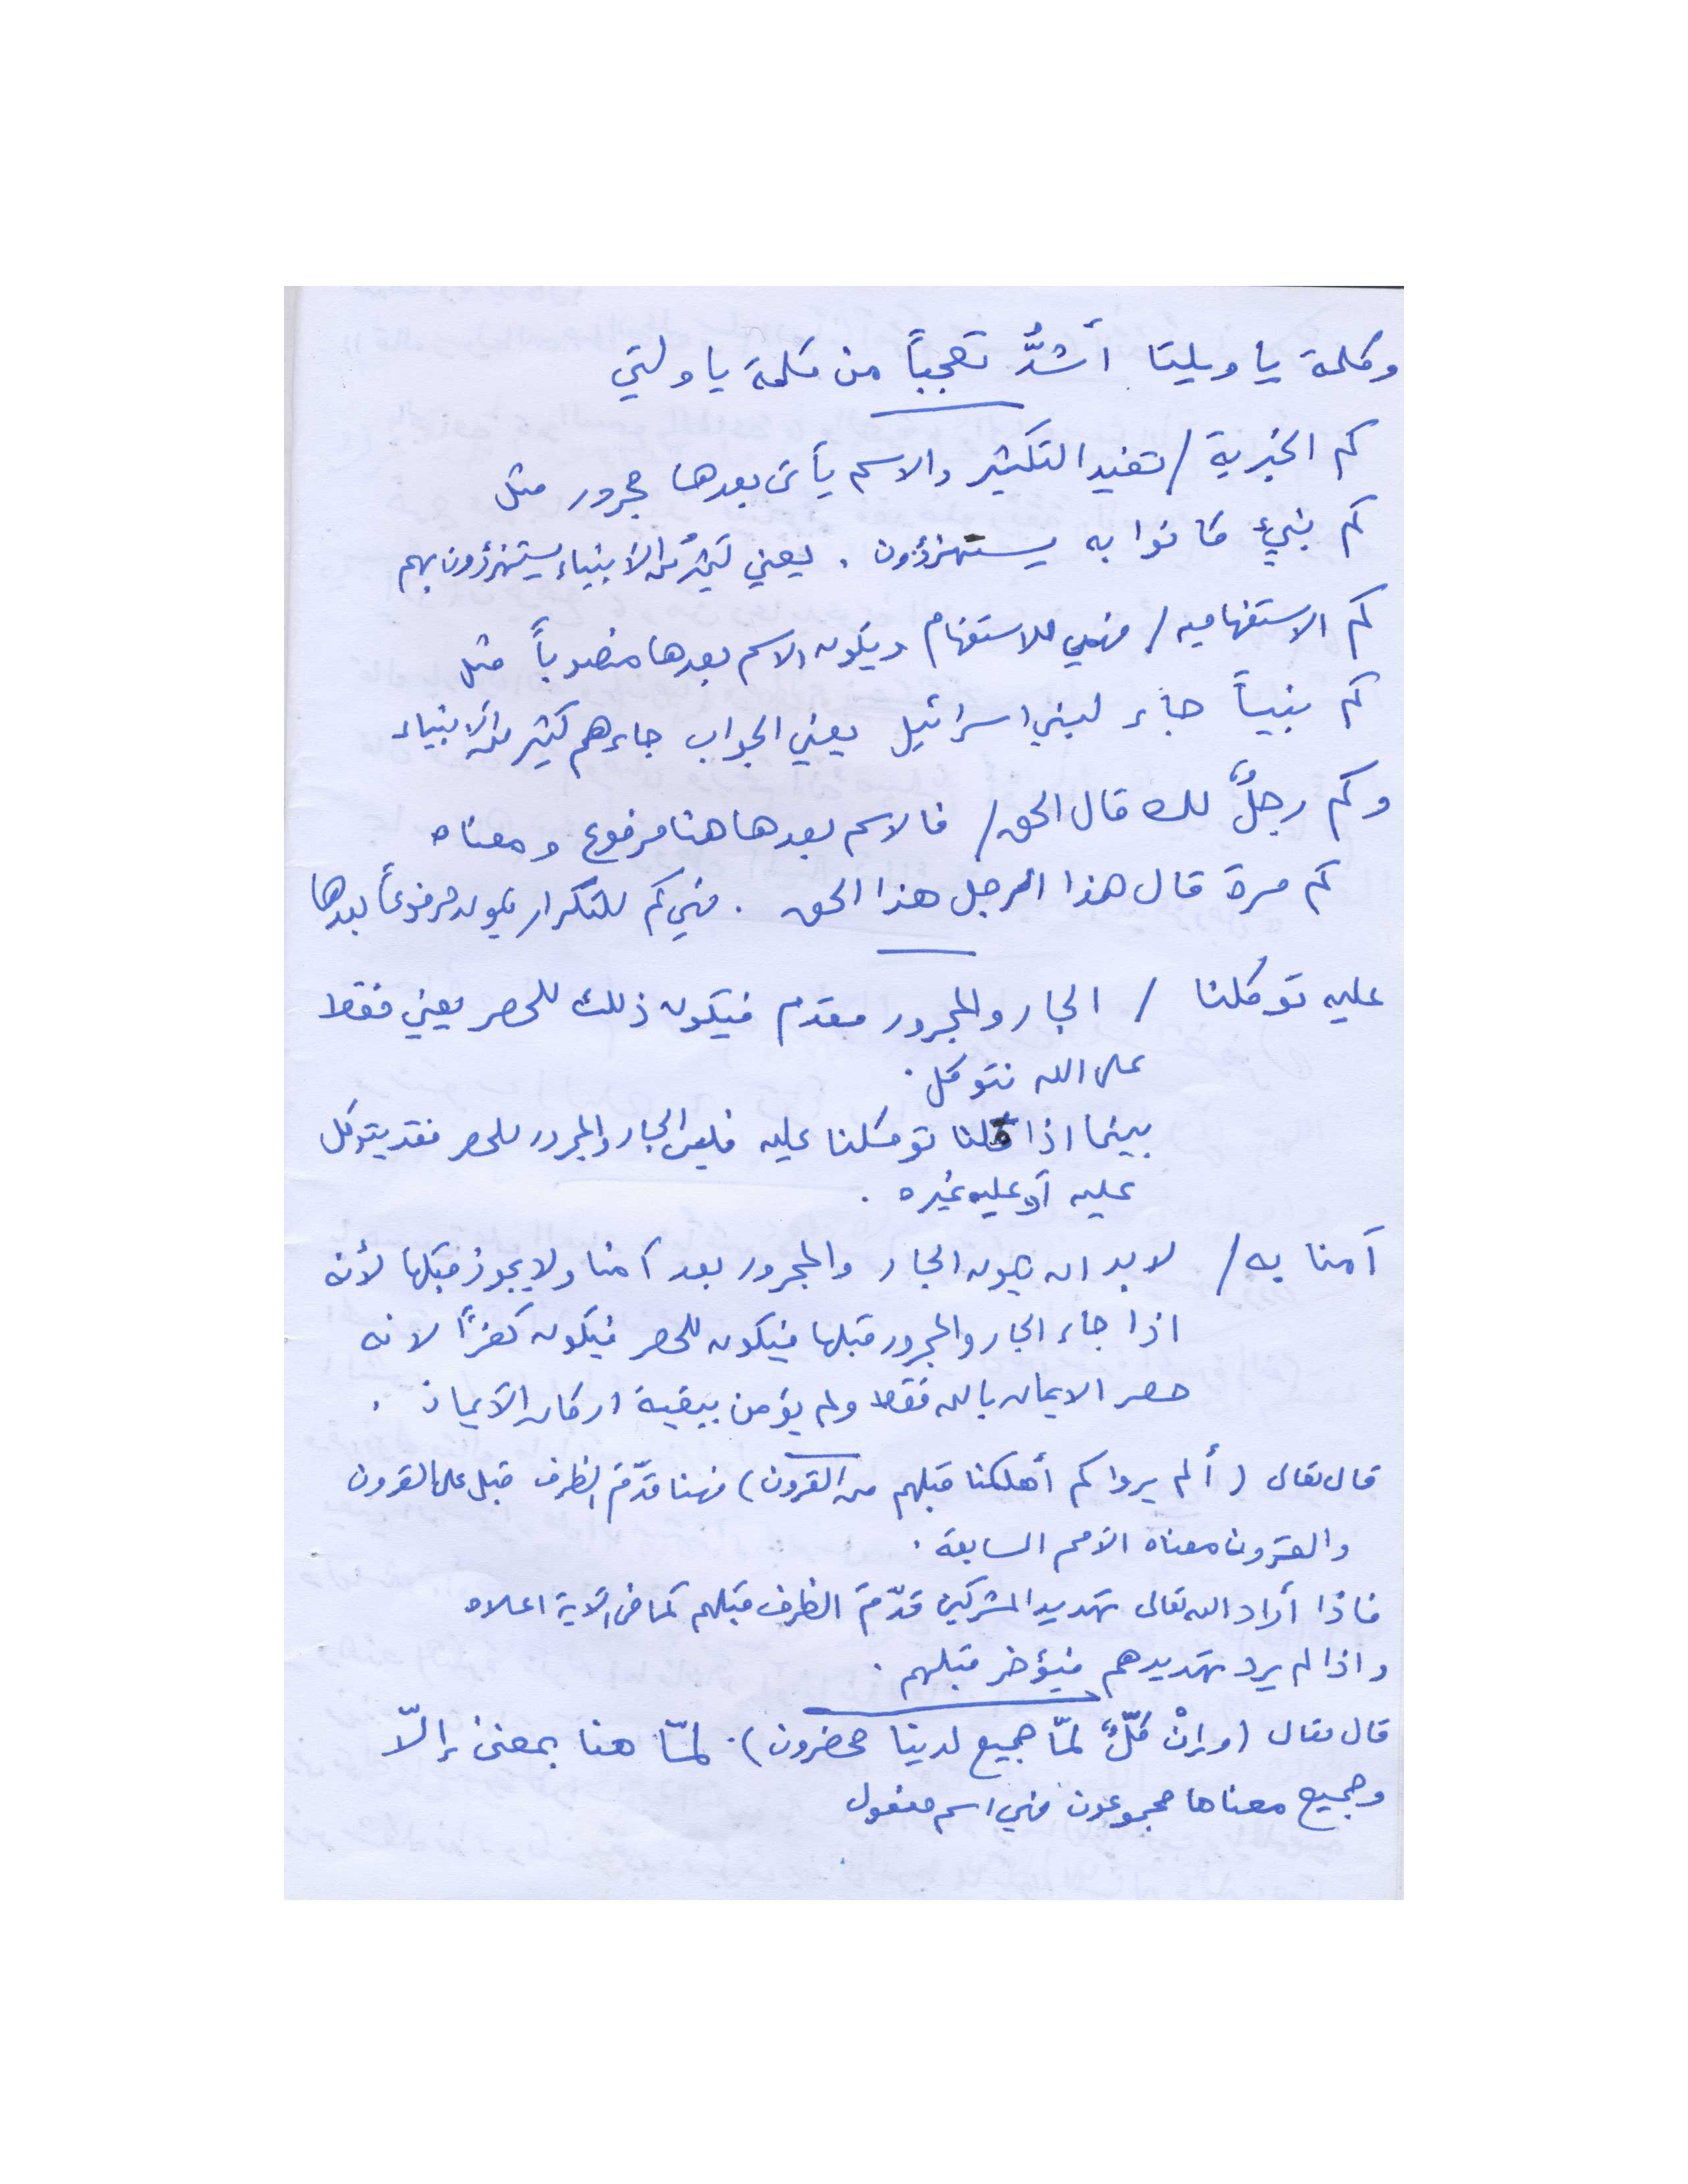 وكلمة يا ويلتا أشدُّ تعجباً من كلمة يا ولتي
كم الخبرية / تفيد التكثير والاسم يأتي بعدها مجرور مثل
كم نبيٍ كانوا به يستهزؤون . يعني كثيرٌ من الأنبياء يستهزؤون بهم
كم الاستفهاميه / فهي للاستفهام ويكون الاسم بعدها منصوباً مثل
كم نبياً جاء لبني اسرائيل يعني الجواب جاءهم كثير من الأنبياء
وكم رجلٌ لك قال الحق / فالاسم بعدها هنا مرفوع ومعناه
كم مرة قال هذا الرجل هذا الحق . فهي كم للتكرار يكون مرفوعاً بعدها
عليه توكلنا / الجار والمجرور مقدم فيكون ذلك للحصر يعني فقط
على الله نتوكل .
بينما اذا قلنا توكلنا عليه فليس الجار والمجرور للحصر فقد يتوكل
عليه أو عليه غيره .
آمنا به / لا بد ان يكون الجار والمجرور بعد آمنا ولا يجوز قبلها لأنه
اذا جاء الجار والمجرور قبلها فيكون للحصر فيكون كفراً لانه
حصر الايمان بالله فقط ولم يؤمن ببقية اركان الأيمان .
قال تعالى (ألم يروا كم أهلكنا قبلهم من القرون) فهنا قدّمَ الظرف قبل على القرون
والقرون معناه الأمم السابقة .
فاذا أراد الله تعالى تهديد المشركين قدّمَ الظرف قبلهم كما في الآية اعلاه
واذا لم يرد تهديدهم فيؤخر قبلهم .
قال تعالى (وإنْ كلٌّ لمّا جميع لدينا محضرون). لمّا هنا بمعنى إلّا
وجميع معناها مجموعون فهي اسم مفعول